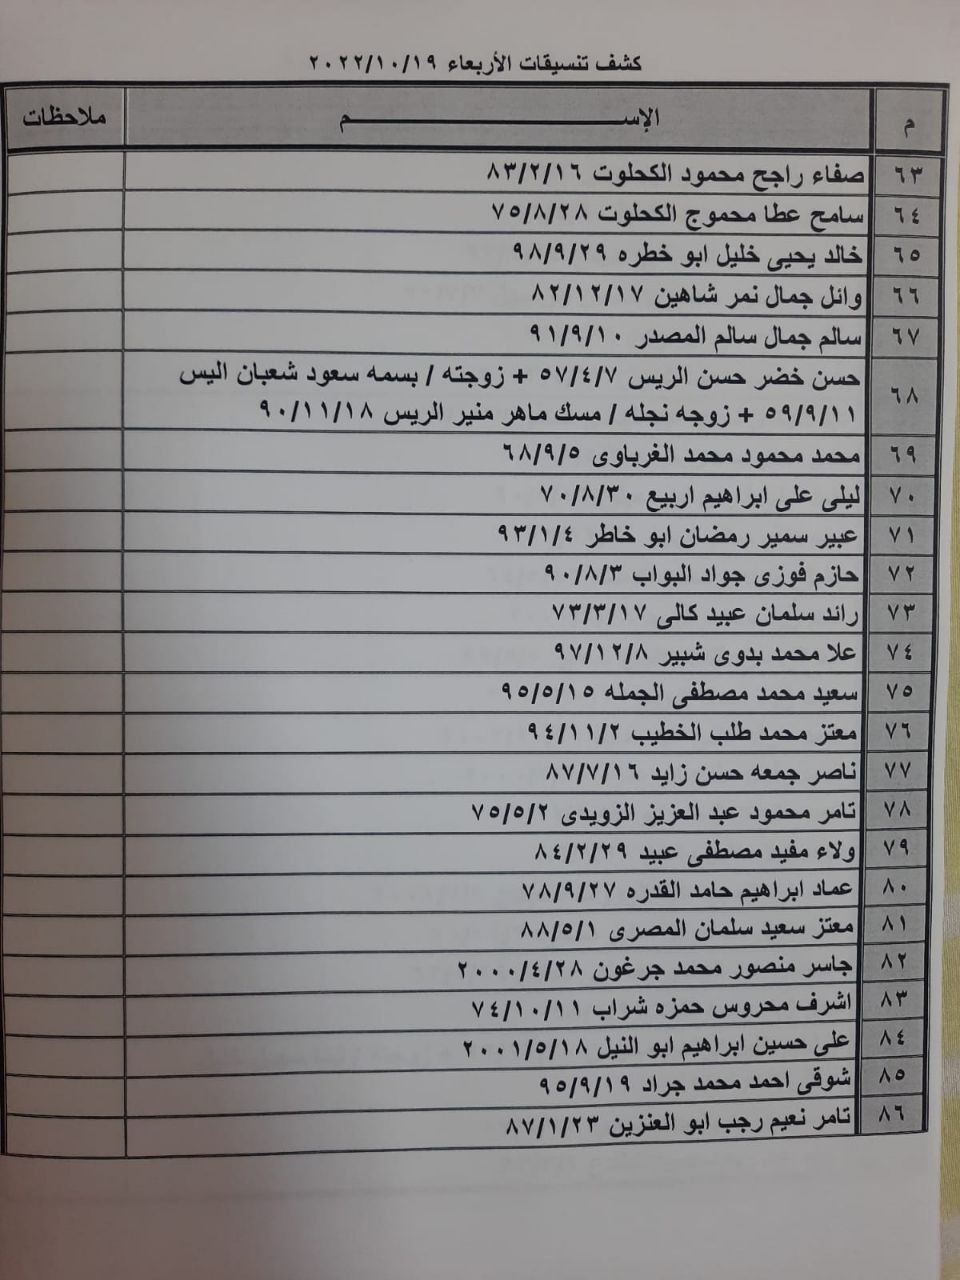 كشف تنسيقات الأربعاء ٢٠٢٢/١٠/١٩
م الإســـــــــــــــــــم ملاحظات
٦٣ صفاء راجح محمود الكحلوت ٨٣/٢/١٦
٦٤ سامح عطا محموج الكحلوت ٧٥/٨/٢٨
٦٥ خالد يحيى خليل ابو خطره ٩٨/٩/٢٩
٦٦ وائل جمال نمر شاهين ٨٢/١٢/١٧
٦٧ سالم جمال سالم المصدر ٩١/٩/١٠
٦٨ حسن خضر حسن الريس ٥٧/٤/٧ + زوجته / بسمه سعود شعبان اليس
٥٩/٩/١١ + زوجه نجله / مسك ماهر منير الريس ٩٠/١١/١٨
٦٩ محمد محمود محمد الغرباوى ٦٨/٩/٥
٧٠ ليلى على ابراهيم اربيع ٧٠/٨/٣٠
٧١ عبير سمير رمضان ابو خاطر ٩٣/١/٤
٧٢ حازم فوزى جواد البواب ٩٠/٨/٣
٧٣ رائد سلمان عبيد كالى ٧٣/٣/١٧
٧٤ علا محمد بدوى شبير ٩٧/١٢/٨
٧٥ سعيد محمد مصطفى الجمله ٩٥/٥/١٥
٧٦ معتز محمد طلب الخطيب ٩٤/١١/٢
٧٧ ناصر جمعه حسن زايد ٨٧/٧/١٦
٧٨ تامر محمود عبد العزيز الزويدى ٧٥/٥/٢
٧٩ ولاء مفيد مصطفى عبيد ٨٤/٢/٢٩
٨٠ عماد ابراهيم حامد القدره ٧٨/٩/٢٧
٨١ معتز سعيد سلمان المصرى ٨٨/٥/١
٨٢ جاسر منصور محمد جرغون ٢٠٠٠/٤/٢٨
٨٣ اشرف محروس حمزه شراب ٧٤/١٠/١١
٨٤ على حسين ابراهيم ابو النيل ٢٠٠١/٥/١٨
٨٥ شوقى احمد محمد جراد ٩٥/٩/١٩
٨٦ تامر نعيم رجب ابو العنزين ٨٧/١/٢٣